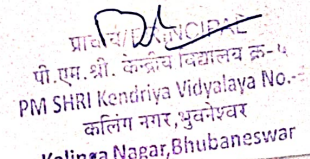 प्राचार्य/PRINCIPAL
पी.एम.श्री. केन्द्रीय विद्यालय क्र-५
PM SHRI Kendriya Vidyalaya No.-
कलिंग नगर,भुवनेश्वर
Kalinga Nagar,Bhubaneswar